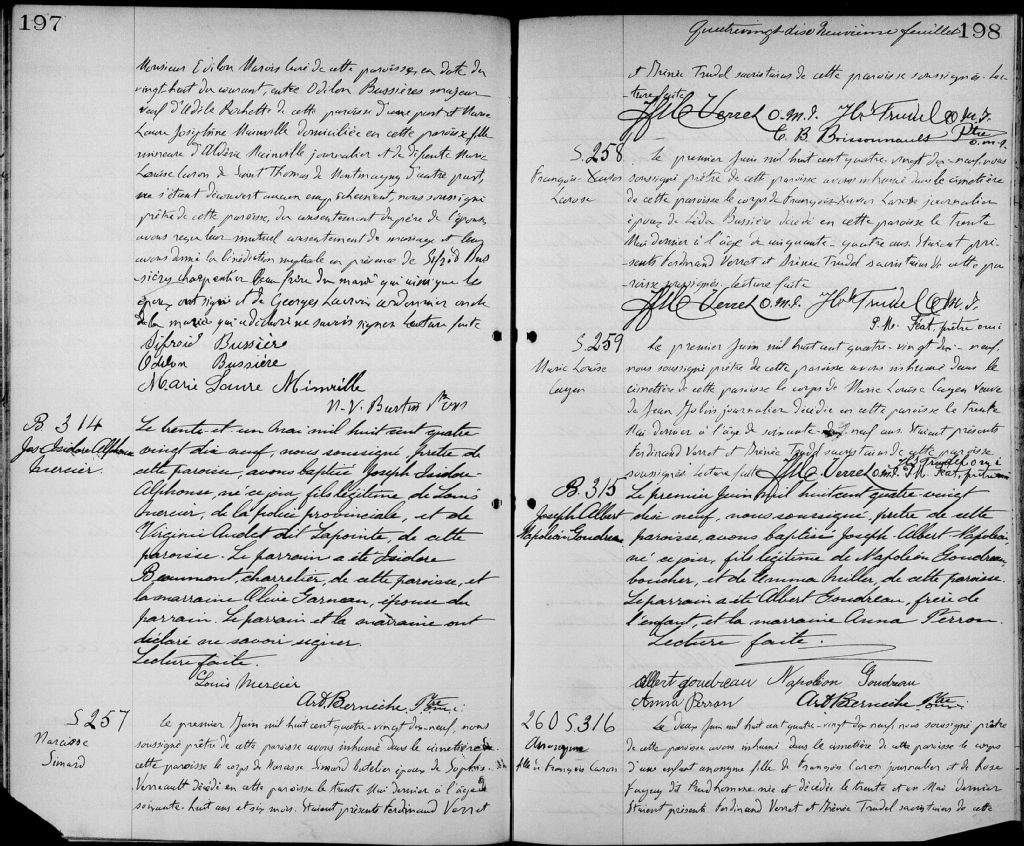 197
Monsieur Edilon Marois curé de cette paroisse, en date du
vingt huit du courant, entre Odilon Bussières majeur
veuf d'Adèle Rochette de cette paroisse d'une part et Marie
Laure Joséphine Mainville domiciliée en cette paroisse fille
mineure d'Aldéric Mainville journalier et de défunte Marie
Louise Caron de Saint Thomas de Montmagny d'autre part,
ne s'étant découvert aucun empêchement, nous soussigné
prêtre de cette paroisse, du consentement du père de l'épouse
avons reçu leur mutuel consentement de mariage et leur
avons donné la bénédiction nuptiale en présence de Sifroid Bus
sières charpentier beau frère du marié qui ainsi que les
époux ont signé et de Georges Lacroix cordonnier oncle
de la mariée qui a déclaré ne savoir signer Lecture faite
Sifroid Bussière
Odilon Bussière
Marie Laure Minville
N. V. Burtin Ptre OMI
B 314
Jos. Isidore Alphonse
Mercier.
Le trente et un mai mil huit cent quatre
vingt dix neuf, nous soussigné, prêtre de
cette paroisse, avons baptisé Joseph Isidore
Alphonse, né ce jour, fils légitime de Louis
Mercier, de la police provinciale, et de
Virginie Audet dit Lapointe, de cette
paroisse. Le parrain a été Isidore
Beaumont, charretier, de cette paroisse, et
la marraine Olivie Garneau, épouse du
parrain. Le parrain et la marraine ont
déclaré ne savoir signer.
Lecture faite.
Louis Mercier
Art. Bernèche Ptre o.m.i.
S 257
Narcisse
Simard
Le premier Juin mil huit cent quatre-vingt dix-neuf, nous
soussigné prêtre de cette paroisse avons inhumé dans le cimetière de
cette paroisse le corps de Narcisse Simard batelier époux de Sophie
Verreault décédé en cette paroisse le trente Mai dernier à l'âge de
soixante-huit ans et six mois. Etaient présents Ferdinand Verret
Quatrevingt dix neuvième feuillet 198
et Irénée Trudel sacristains de cette paroisse soussignés. Lec-
ture faite
Verret O.M.I. Trudel O.M.I.
C. B. Brissonnault Ptre
o.m.i.
S. 258
François-Xavier
Larose
Le premier Juin mil huit cent quatre-vingt dix-neuf, nous
soussigné prêtre de cette paroisse avons inhumé dans le cimetière
de cette paroisse le corps de François-Xavier Larose journalier
époux de Léda Bussière décédé en cette paroisse le trente
Mai dernier à l'âge de cinquante-quatre ans. Etaient pré-
sents Ferdinand Verret et Irénée Trudel sacristains de cette pa-
roisse soussignés. Lecture faite
Verret O.M.I. Trudel O.M.I.
P. M. Féat, prêtre omi
S. 259
Marie Louise
Cayen
Le premier Juin mil huit cent quatre-vingt dix-neuf,
nous soussigné prêtre de cette paroisse avons inhumé dans le
cimetière de cette paroisse le corps de Marie Louise Cayen veuve
de Jean Jolin journalier décédée en cette paroisse le trente
Mai dernier à l'âge de soixante dix-neuf ans. Etaient présents
Ferdinand Verret et Irénée Trudel sacristains de cette paroisse
soussignés. Lecture faite Verret O.M.I. Trudel o m i
P. M. Féat, prêtre omi
B. 315
Joseph Albert
Napoléon Goudreau
Le premier Juin mil huit cent quatre vingt
dix neuf, nous soussigné, prêtre de cette
paroisse, avons baptisé Joseph-Albert-Napoléon,
né ce jour, fils légitime de Napoléon Goudreau,
boucher, et de Emma Miller, de cette paroisse.
Le parrain a été Albert Goudreau, frère de
l'enfant, et la marraine Anna Perron.
Lecture faite.
Albert Goudreau Napoléon Goudreau
Anna Perron Art. Bernèche Ptre o.m.i.
260 S. 316
Anonyme
fille de François Caron
Le deux Juin mil huit cent quatre-vingt dix-neuf, nous soussigné prêtre
de cette paroisse avons inhumé dans le cimetière de cette paroisse le corps
d'une enfant anonyme fille de François Caron journalier et de Rose
Fuguy dit Prudhomme née et décédée le trente et un Mai dernier
Etaient présents Ferdinand Verret et Irénée Trudel sacristains de cette